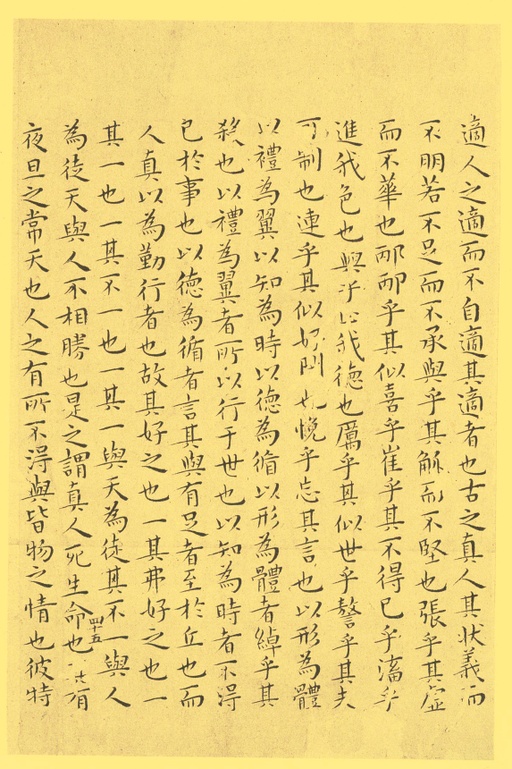 適人之適而不自適其適者也古之真人其狀義而
不明若不足而不承與乎其觚而不堅也張乎其虛
而不華也邴邴乎其似喜乎崔乎其不得已乎滀乎
進我色也與乎止我德也厲乎其似世乎謷乎其夫
可制也連乎其似好閇也悅乎忘其言也以形為體
以禮為翼以知為時以德為循以形為體者綽乎其
殺也以禮為翼者所以行于世也以知為時者不得
已於事也以德為循者言其與有足者至於丘也而
人真以為勤行者也故其好之也一其弗好之也一
其一也一其不一也一其一與天為徒其不一與人
為徒天與人不相勝也是之謂真人死生命也四十五其有
夜旦之常天也人之有所不得與皆物之情也彼特